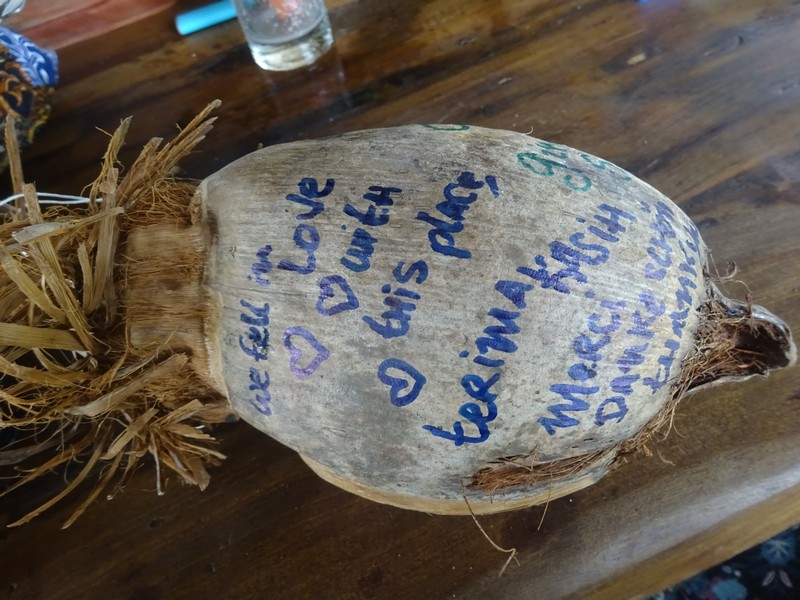 we fell in
Love
♡ ♡ with
♡ this place
terima kasih
Merci
Danke schön